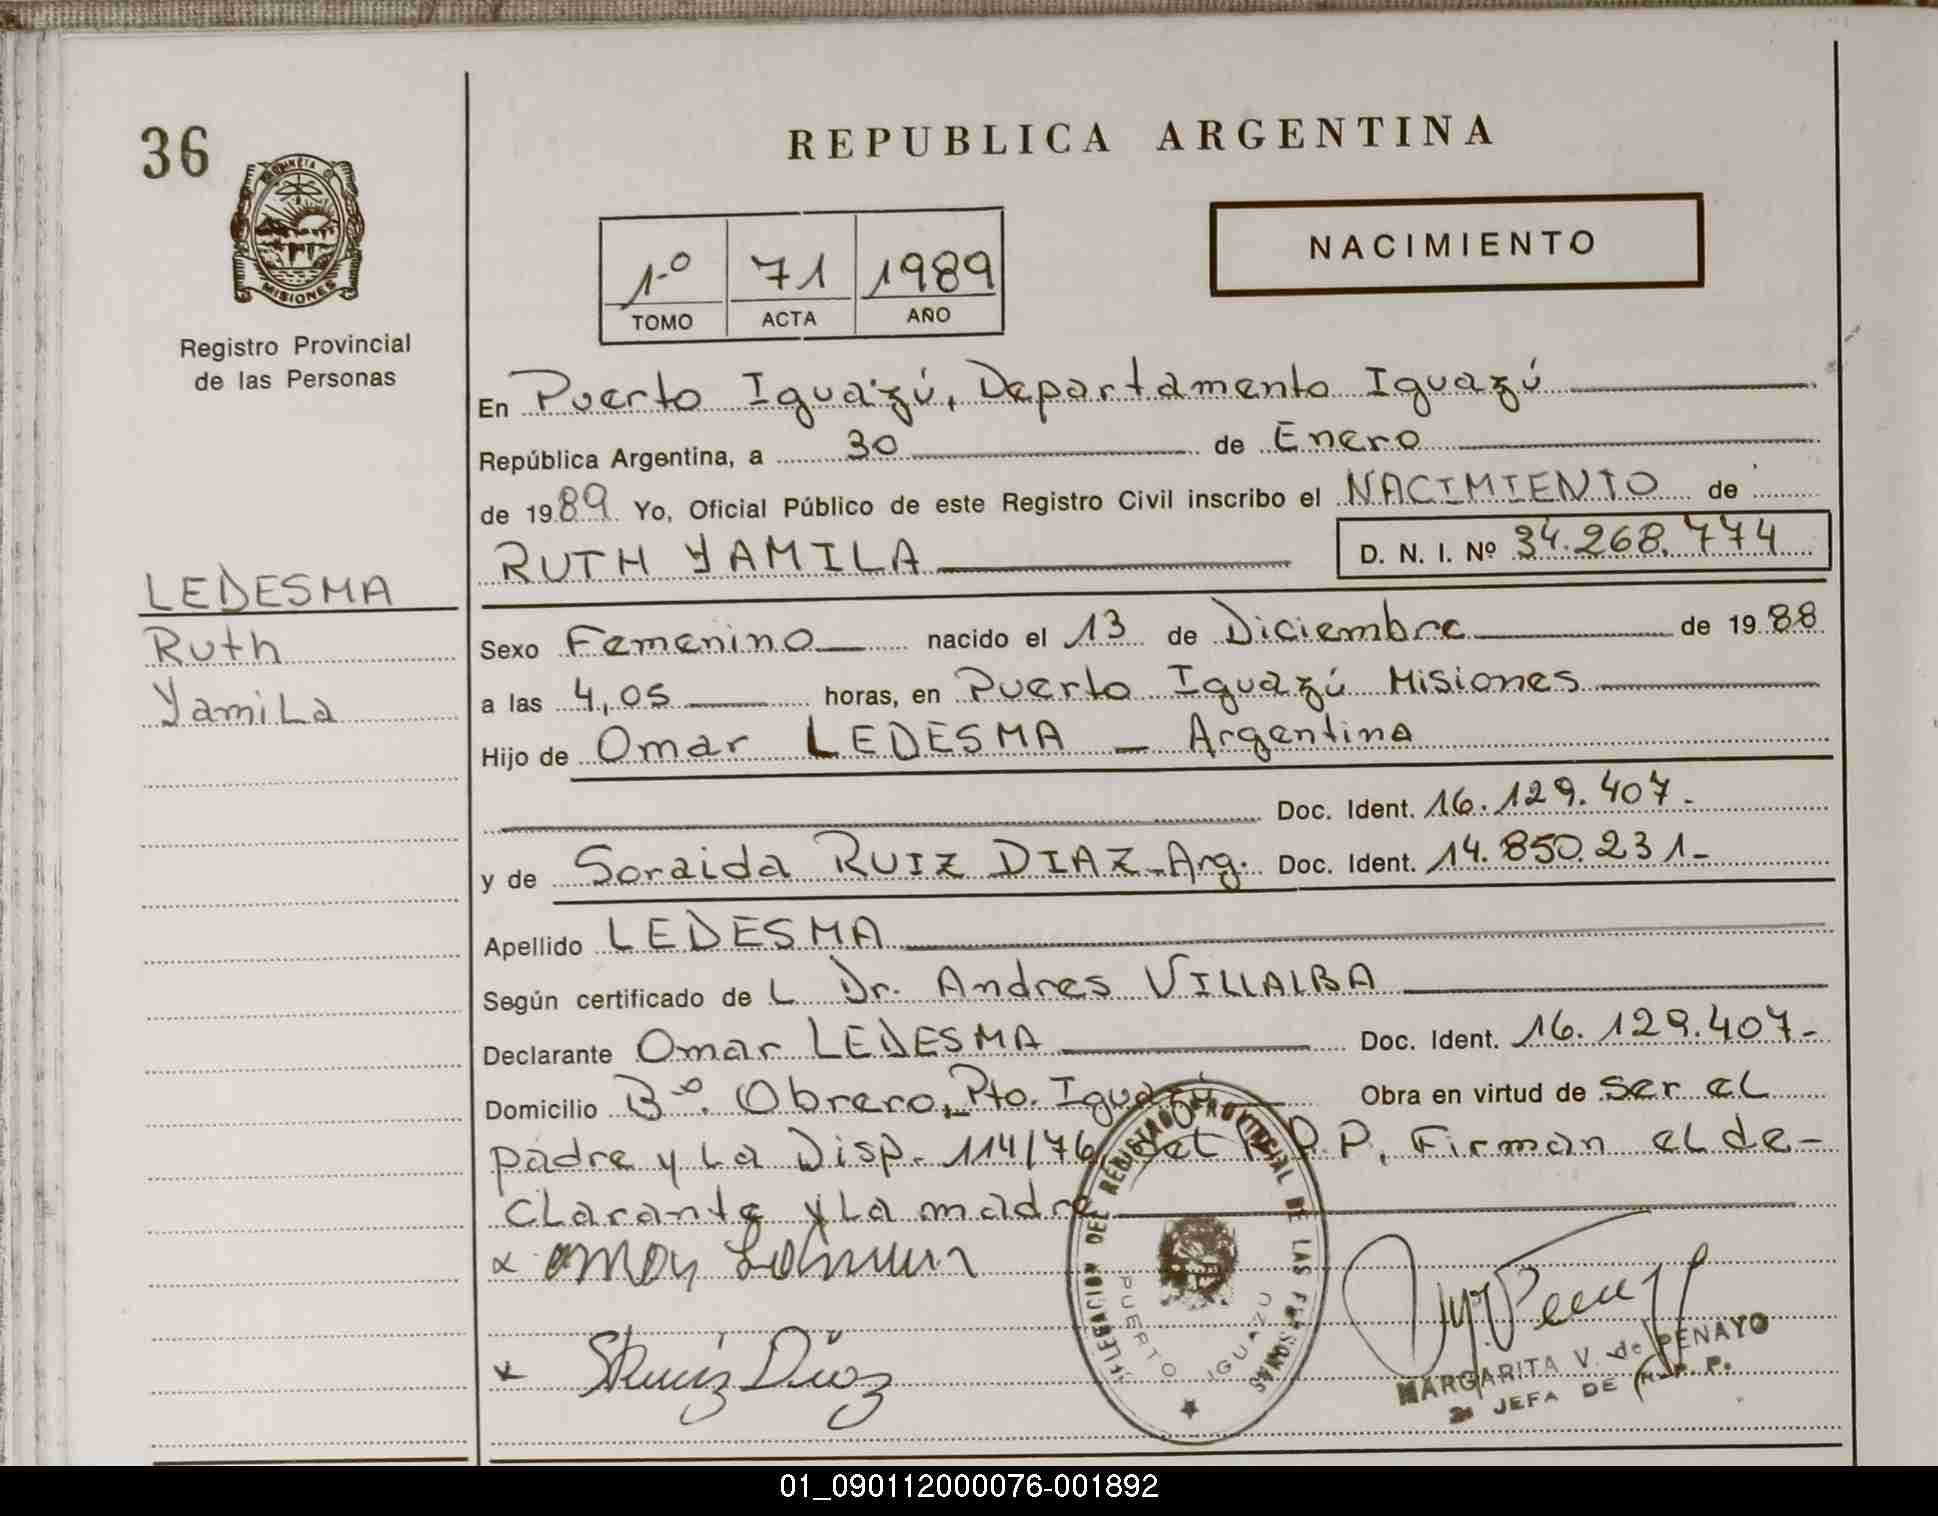 36
PROVINCIA DE
MISIONES
Registro Provincial
de las Personas
LEDESMA
Ruth
Yamila
REPUBLICA ARGENTINA
1º 71 1989
TOMO ACTA AÑO
NACIMIENTO
En Puerto Iguazú, Departamento Iguazú
República Argentina, a 30 de Enero
de 1989 Yo, Oficial Público de este Registro Civil inscribo el NACIMIENTO de
RUTH YAMILA D. N. I. Nº 34.268.774
Sexo Femenino nacido el 13 de Diciembre de 1988
a las 4,05 horas, en Puerto Iguazú Misiones
Hijo de Omar LEDESMA - Argentina
Doc. Ident. 16.129.407-
y de Soraida RUIZ DIAZ-Arg. Doc. Ident. 14.850.231-
Apellido LEDESMA
Según certificado de L Dr. Andres VILLALBA
Declarante Omar LEDESMA Doc. Ident. 16.129.407-
Domicilio Bº. Obrero, Pto. Iguazú Obra en virtud de ser el
padre y la Disp. 114/76 del R.P.P, Firman el de-
clarante y la madre
x Omar
x SRuiz Diaz
DELEGACION DEL REGISTRO PROVINCIAL DE LAS PERSONAS
PUERTO IGUAZU
MARGARITA V. de PENAYO
2a JEFA DE R. P. P.
01_090112000076-001892